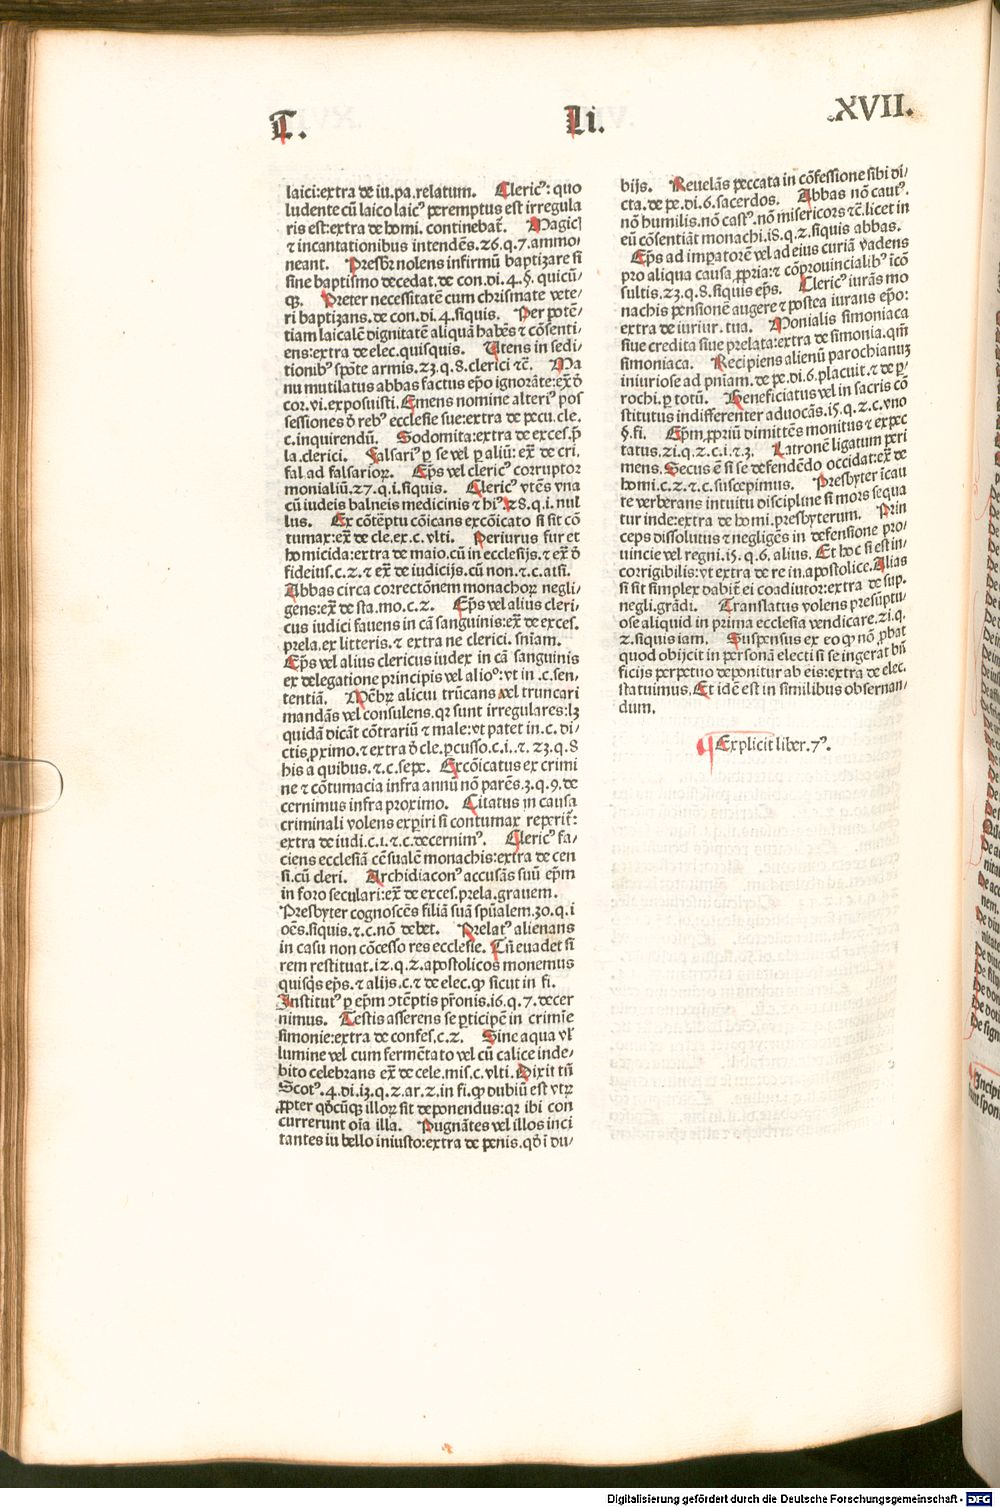 T.
Li.
.XVII.
laici:extra de iu.pa.relatum. Clericꝰ: quo
ludente cũ laico laicꝰ peremptus est irregula
ris est:extra de homi. continebat̃. Magicꝭ
⁊ incantationibus intendẽs.26.q.7.ammo⸗
neant. Presbr̃ nolens infirmũ baptizare si
sine baptismo decedat.de con.di.4.§. quicũ⸗
qꝫ. Preter necessitatẽ cum chrismate vete⸗
ri baptizans.de con.di.4.siquis. Per potẽ⸗
tiam laicalẽ dignitatẽ aliquã habẽs ⁊ cõsenti⸗
ens:extra de elec.quisquis. Utens in sedi⸗
tionibꝰ spõte armis.23.q.8.clerici ⁊c̃. Ma
nu mutilatus abbas factus ep̃o ignorãte:ex̃ đ
cor.vi.exposuisti. Emens nomine alteriꝰ pos
sessiones đ rebꝰ ecclesie sue:extra de pecu.cle.
c.inquirendũ. Sodomita:extra de exces.p̃
la.clerici. Falsariꝰ ꝑ se vel ꝑ aliũ: ex̃ de cri.
fal ad falsarioꝝ. Ep̃s vel clericꝰ corruptor
monialiũ.27.q.i.siquis. Clericꝰ vtẽs vna
cũ iudeis balneis medicinis ⁊ hiꝰ.28.q.i.nul
lus. Ex cõtẽptu cõicans excõicato si sit cõ
tumax:ex̃ de cle.ex.c.vlti. Periurus fur et
homicida:extra de maio.cũ in ecclesijs.⁊ ex̃ đ
fideius.c.2.⁊ ex̃ de iudicijs.cũ non.⁊.c.atsi.
Abbas circa correctõnem monachoꝝ negli⸗
gens:ex̃ de sta.mo.c.2. Ep̃s vel alius cleri⸗
cus iudici fauens in cã sanguinis:ex̃ de exces.
prela.ex litteris.⁊ extra ne clerici. sñiam.
Ep̃s vel alius clericus iudex in cã sanguinis
ex delegatione principis vel alioꝰ:vt in .c.sen⸗
tentiã. Mẽbꝝ alicui trũcans vel truncari
mandãs vel consulens.qꝛ sunt irregulares:lꝫ
quidã dicãt cõtrariũ ⁊ male:vt patet in.c. di⸗
ctis ꝓximo.⁊ extra đ cle.ꝑcusso.c.i..⁊. 23.q.8
his a quibus.⁊.c.sepe. Excõicatus ex crimi
ne ⁊ cõtumacia infra annũ nõ parẽs.3.q.9.de
cernimus infra proximo. Citatus in causa
criminali volens exꝑiri si contumax reperit̃:
extra de iudi.c.i.⁊.c.decernimꝰ. Clericꝰ fa⸗
ciens ecclesiã cẽsualẽ monachis:extra de cen
si.cũ cleri. Archidiaconꝰ accusãs suũ ep̃m
in foro seculari:ex̃ de exces.prela.grauem.
Presbyter cognoscẽs filiã suã sp̃ualem.30.q.i
oẽs.siquis.⁊.c.nõ debet. Prelatꝰ alienans
in casu non cõcesso res ecclesie. Tñ euadet si
rem restituat.12.q.2.apostolicos monemus
quisq̃s ep̃s.⁊ alijs.c.⁊ de elec.ꝙ sicut in fi.
Institutꝰ ꝑ ep̃m ↄ̃tẽptis pr̃onis.16.q.7.decer
nimus. Testis asserens se ꝑticipẽ in crimĩe
simonie:extra de confes.c.2. Sine aqua vł
lumine vel cum fermẽtato vel cũ calice inde⸗
bito celebrans ex̃ de cele.mis.c.vlti. Dixit tñ
Scotꝰ.4.di.13.q.2.ar.2.in fi.ꝙ dubiũ est vtꝝ
ꝓpter qđcũqꝫ illoꝝ sit deponendus:qꝛ ibi con
currerunt oĩa illa. Pugnãtes vel illos inci
tantes iu bello iniusto:extra de penis.qđ ĩ du⸗
bijs. Reuelãs peccata in cõfessione sibi di⸗
cta.de pe.di.6.sacerdos. Abbas nõ cautꝰ.
nõ humilis.nõ castꝰ.nõ misericors ⁊c̃.licet in
eũ cõsentiãt monachi.18.q.2.siquis abbas.
Ep̃s ad imꝑatorẽ vel ad eius curiã vadens
pro aliqua causa ꝓpria:⁊ cõprouincialibꝰ ĩcõ
sultis.23.q.8.siquis ep̃s. Clericꝰ iurãs mo
nachis pensionẽ augere ⁊ postea iurans ep̃o:
extra de iuriur.tua. Monialis simoniaca
siue credita siue prelata:extra de simonia.qm̃
simoniaca. Recipiens alienũ parochianuꝫ
iniuriose ad pñiam.de pe.di.6.placuit.⁊ de ꝑ⸗
rochi.ꝑ totũ. Beneficiatus vel in sacris cõ
stitutus indifferenter aduocãs.15.q.2.c.vno
§.fi. Ep̃m ꝓpriũ dimittẽs monitus ⁊ expec
tatus.21.q.2.c.1.⁊.3. Latronẽ ligatum peri
mens. Secus ẽ si se defendẽdo occidat:ex̃ de
homi.c.2.⁊.c.suscepimus. Presbyter ĩcau
te verberans intuitu discipline si mors sequa
tur inde:extra de homi.presbyterum. Prin
ceps dissolutus ⁊ negligẽs in defensione pro⸗
uincie vel regni.15.q.6.alius. Et hoc si est in⸗
corrigibilis:vt extra de re in.apostolice. Alias
si sit simplex dabit̃ ei coadiutor:extra de sup.
negli.grãdi. Translatus volens presũptu⸗
ose aliquid in prima ecclesia vendicare.21.q.
2.siquis iam. Suspensus ex eo ꝙ nõ ꝓbat
quod obijcit in personã electi si se ingerat bñ
ficijs perpetuo deponitur ab eis:extra de elec.
statuimus. Et idẽ est in similibus obseruan⸗
dum.
¶ Explicit liber.7ꝰ.
Digitalisierung gefördert durch die Deutsche Forschungsgemeinschaft - DFG